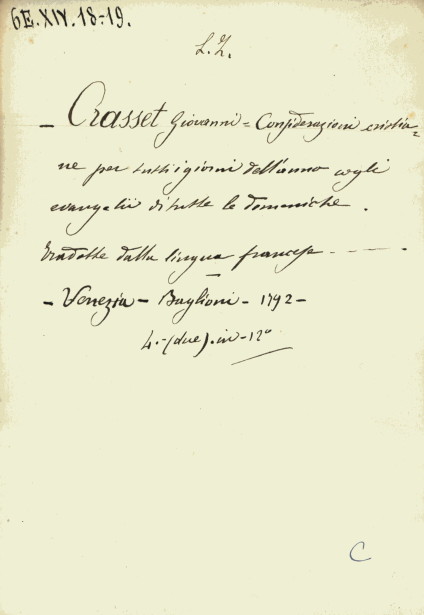 6E.XIV.18-19.
L.Z.
- Crasset Giovanni = Considerazioni cristia=
ne per tutti i giorni dell'anno cogli
evangelii di tutte le domeniche.
Tradotte dalla lingua francese - - -
- Venezia - Baglioni - 1792 -
4.-(due).in-12º
C